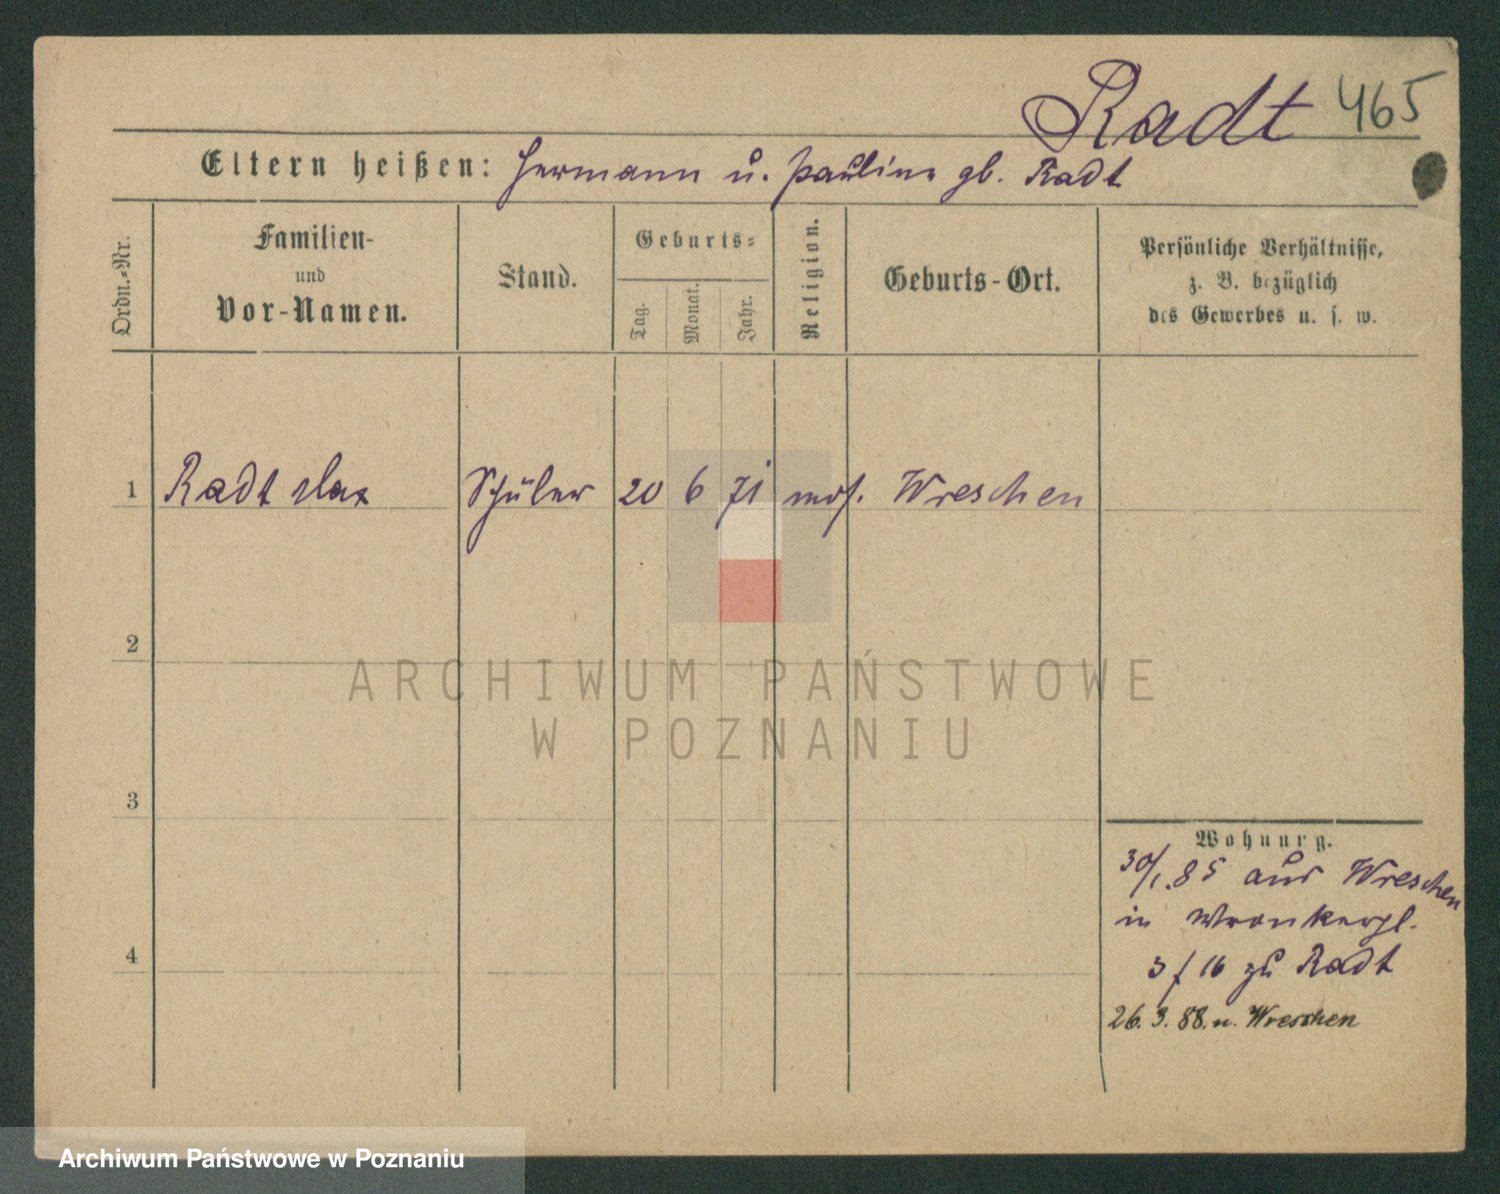 Radt 465
Eltern heißen: Hermann u. Pauline gb. Radt
Ordn.-Nr.
Familien-
und
Vor-Namen.
Stand.
Geburts-
Tag.
Monat.
Jahr.
Religion.
Geburts-Ort.
Persönliche Verhältnisse,
z. B. bezüglich
des Gewerbes u. s. w.
1 Radt Max Schüler 20 6 71 mos. Wreschen
2
3
4
Wohnung.
30/1.85 aus Wreschen
in Wronkerpl.
3 f 16 zu Radt
26.3.88. n. Wreschen
ARCHIWUM PAŃSTWOWE
W POZNANIU
Archiwum Państwowe w Poznaniu